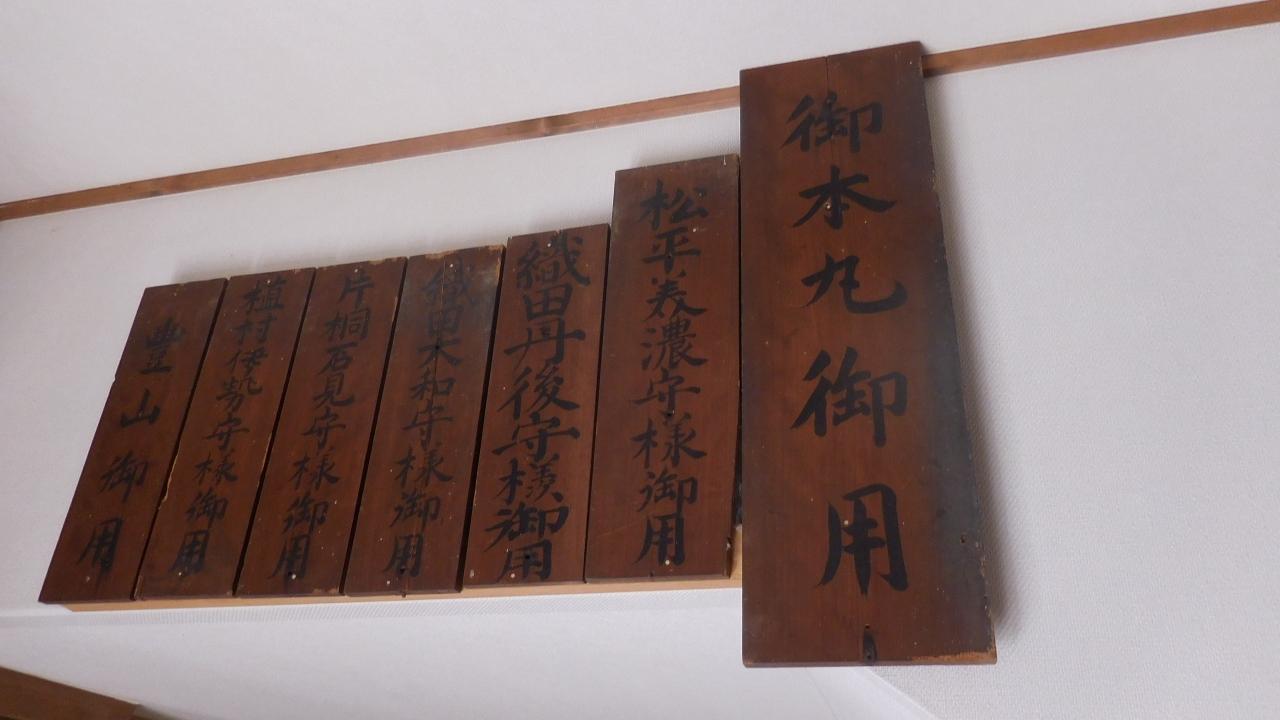 御本丸御用
松平美濃守様御用
織田丹後守様御用
織田大和守様御用
片桐石見守様御用
植村伊勢守様御用
豊山御用